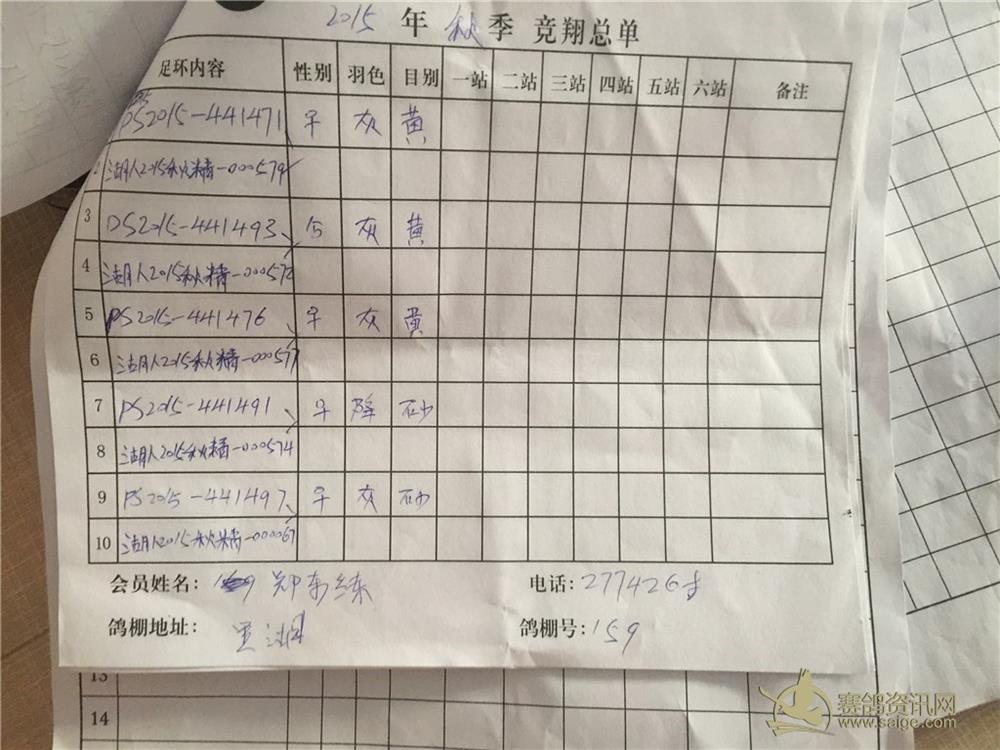 2015 年 秋 季 竞翔总单
足环内容 性别 羽色 目别 一站 二站 三站 四站 五站 六站 备注
PS2015-441471 灰 黄
湖人2015秋精-000579
3 PS2015-441493 灰 黄
4 湖人2015秋精-000572
5 PS2015-441476 灰 黄
6 湖人2015秋精-000577
7 PS2015-441491 降 砂
8 湖人2015秋精-000574
9 PS2015-441497 灰 砂
10 湖人2015秋精-000067
会员姓名: 郑 电话: 277426
鸽棚地址: 鸽棚号: 159
13
14
赛鸽资讯网
www.saige.com